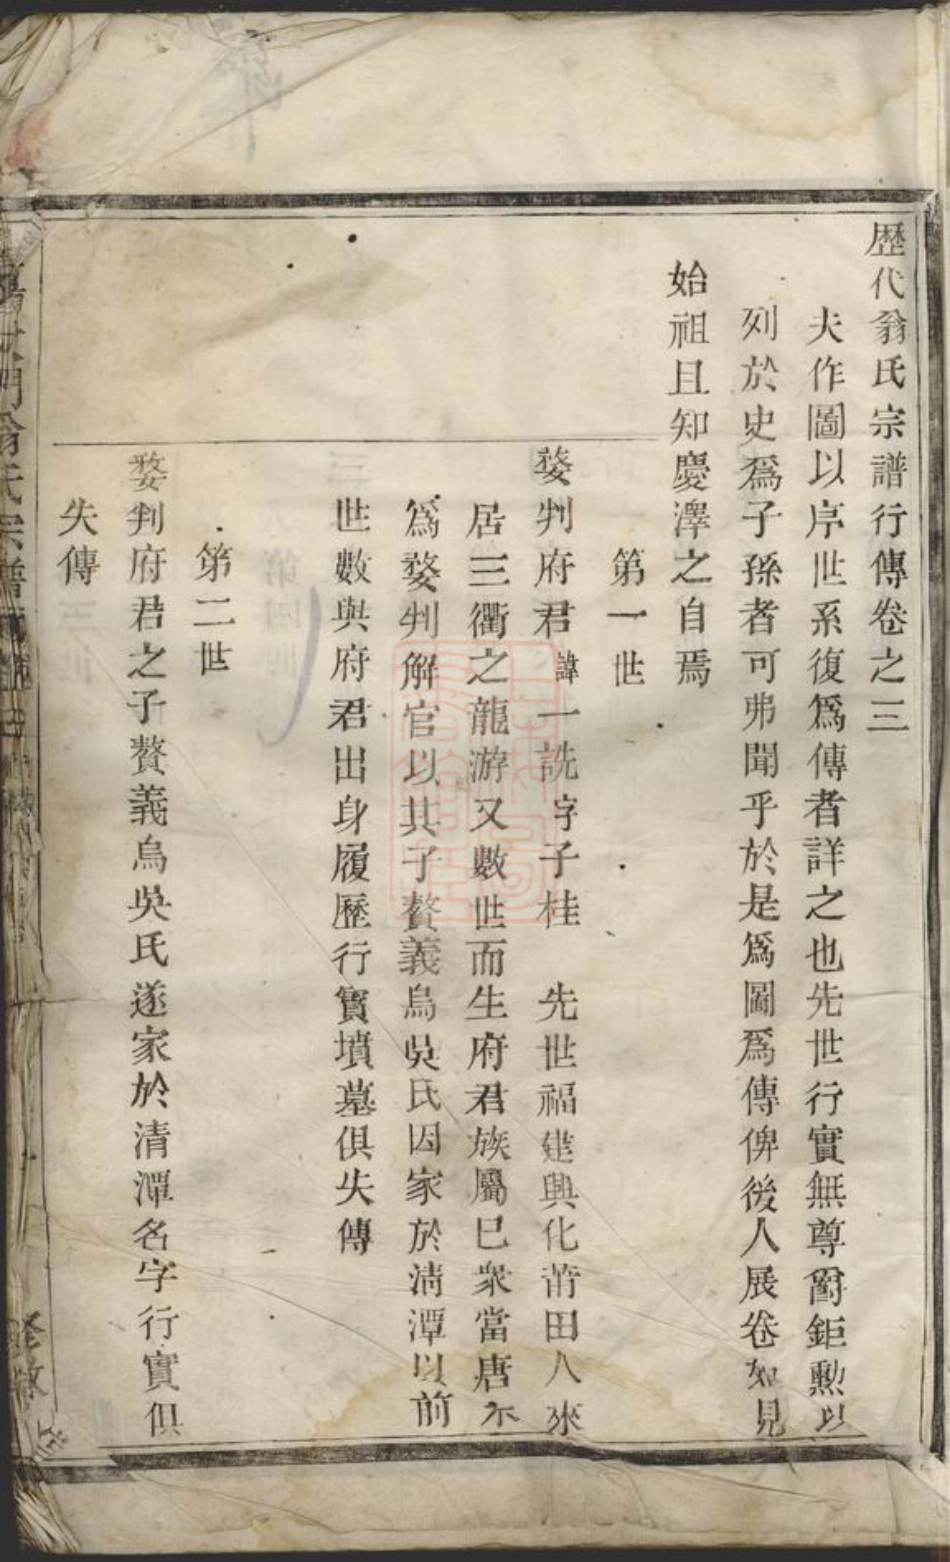 歷代翁氏宗譜行傳卷之三
夫作圖以序世系復爲傳者詳之也先世行實無尊爵鉅勲以
列於史爲子孫者可弗聞乎於是爲圖爲傳俾後人展卷如見
始祖且知慶澤之自焉
第一世
婺判府君諱一詵字子桂 先世福建興化莆田人來
居三衢之龍游又數世而生府君族屬已衆當唐末
爲婺判解官以其子贅義烏吳氏因家於淸潭以前
世數與府君出身履歷行實墳墓俱失傳
第二世
婺判府君之子贅義烏吳氏遂家於清潭名字行實俱
失傳
翁氏宗譜